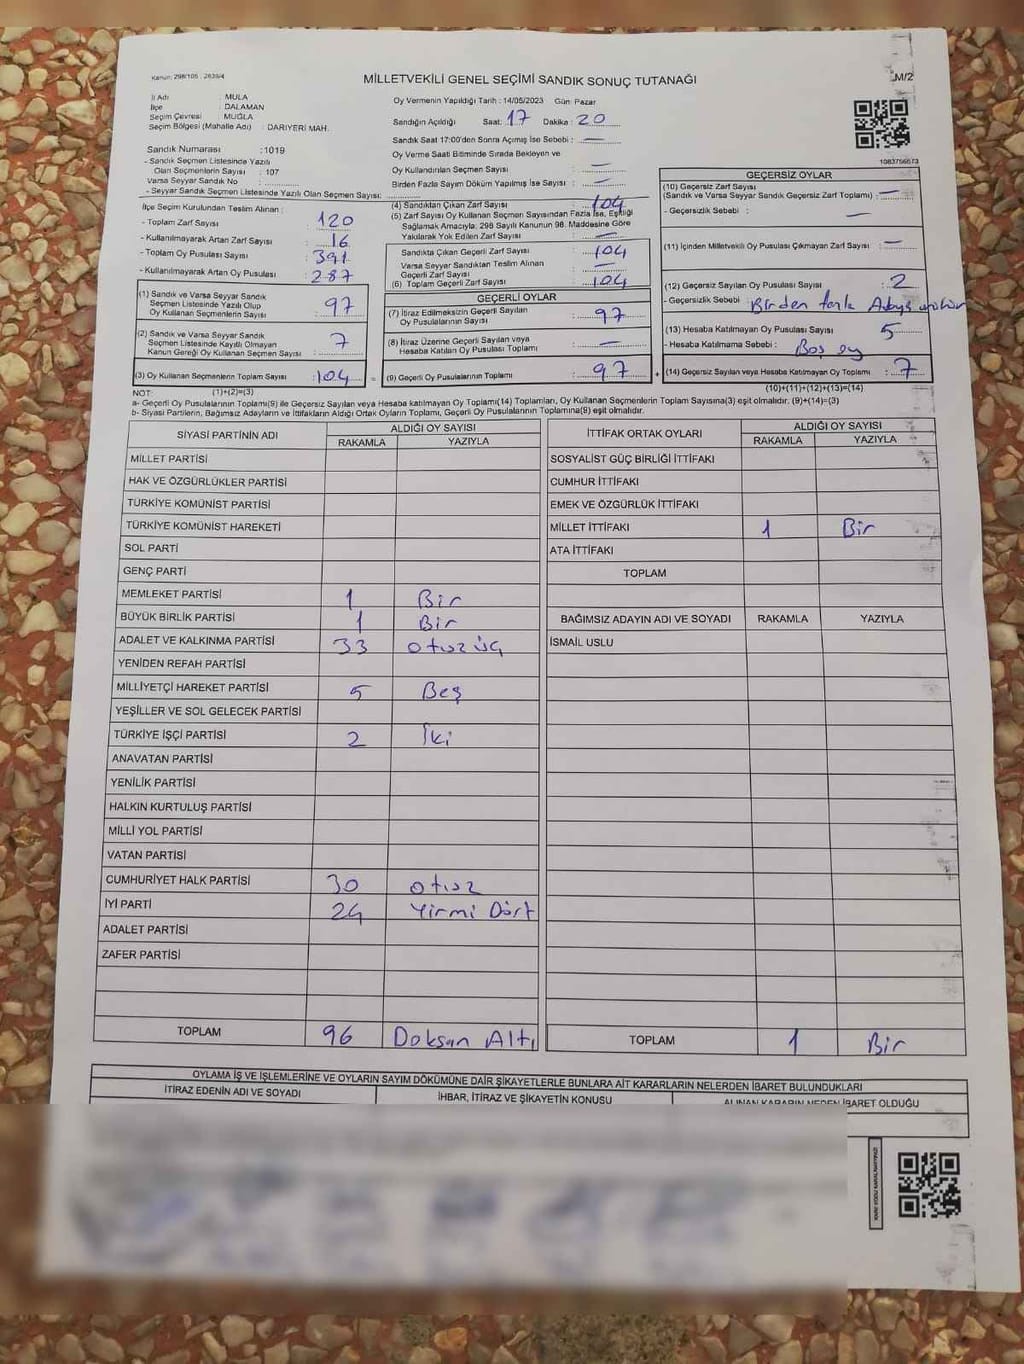 Kanun: 298/105 , 2839/4
MİLLETVEKİLİ GENEL SEÇİMİ SANDIK SONUÇ TUTANAĞI
M/2
İl Adı : MUĞLA
İlçe : DALAMAN
Seçim Çevresi : MUĞLA
Seçim Bölgesi (Mahalle Adı) : DARIYERİ MAH.
Sandık Numarası :1019
- Sandık Seçmen Listesinde Yazılı
Olan Seçmenlerin Sayısı : 107
Varsa Seyyar Sandık No :
- Seyyar Sandık Seçmen Listesinde Yazılı Olan Seçmen Sayısı:
İlçe Seçim Kurulundan Teslim Alınan :
- Toplam Zarf Sayısı : 120
- Kullanılmayarak Artan Zarf Sayısı : 16
- Toplam Oy Pusulası Sayısı : 391
- Kullanılmayarak Artan Oy Pusulası : 287
(1) Sandık ve Varsa Seyyar Sandık
Seçmen Listesinde Yazılı Olup
Oy Kullanan Seçmenlerin Sayısı : 97
(2) Sandık ve Varsa Seyyar Sandık
Seçmen Listesinde Kayıtlı Olmayan
Kanun Gereği Oy Kullanan Seçmen Sayısı : 7
(3) Oy Kullanan Seçmenlerin Toplam Sayısı : 104
Oy Vermenin Yapıldığı Tarih : 14/05/2023 Gün: Pazar
Sandığın Açıldığı Saat: 17 Dakika : 20
Sandık Saat 17:00'den Sonra Açımış İse Sebebi : —
Oy Verme Saati Bitiminde Sırada Bekleyen ve
Oy Kullandırılan Seçmen Sayısı : —
Birden Fazla Sayım Döküm Yapılmış İse Sayısı : —
(4) Sandıktan Çıkan Zarf Sayısı : 104
(5) Zarf Sayısı Oy Kullanan Seçmen Sayısından Fazla İse, Eşitliği
Sağlamak Amacıyla, 298 Sayılı Kanunun 98. Maddesine Göre
Yakılarak Yok Edilen Zarf Sayısı : —
Sandıkta Çıkan Geçerli Zarf Sayısı : 104
Varsa Seyyar Sandıktan Teslim Alınan
Geçerli Zarf Sayısı : —
(6) Toplam Geçerli Zarf Sayısı : 104
GEÇERLİ OYLAR
(7) İtiraz Edilmeksizin Geçerli Sayılan
Oy Pusulalarının Sayısı : 97
(8) İtiraz Üzerine Geçerli Sayılan veya
Hesaba Katılan Oy Pusulası Toplamı : —
= (9) Geçerli Oy Pusulalarının Toplamı : 97
1083756573
GEÇERSİZ OYLAR
(10) Geçersiz Zarf Sayısı
(Sandık ve Varsa Seyyar Sandık Geçersiz Zarf Toplamı) : —
- Geçersizlik Sebebi : —
(11) İçinden Milletvekili Oy Pusulası Çıkmayan Zarf Sayısı : —
(12) Geçersiz Sayılan Oy Pusulası Sayısı : 2
- Geçersizlik Sebebi : Birden fazla
(13) Hesaba Katılmayan Oy Pusulası Sayısı 5
- Hesaba Katılmama Sebebi : Boş oy
+ (14) Geçersiz Sayılan veya Hesaba Katılmayan Oy Toplamı : 7
NOT: (1)+(2)=(3)
(10)+(11)+(12)+(13)=(14)
a- Geçerli Oy Pusulalarının Toplamı(9) ile Geçersiz Sayılan veya Hesaba katılmayan Oy Toplamı(14) Toplamları, Oy Kullanan Seçmenlerin Toplam Sayısına(3) eşit olmalıdır. (9)+(14)=(3)
b- Siyasi Partilerin, Bağımsız Adayların ve İttifakların Aldığı Ortak Oyların Toplamı, Geçerli Oy Pusulalarının Toplamına(9) eşit olmalıdır.
SİYASİ PARTİNİN ADI ALDIĞI OY SAYISI
RAKAMLA YAZIYLA
MİLLET PARTİSİ
HAK VE ÖZGÜRLÜKLER PARTİSİ
TÜRKİYE KOMÜNİST PARTİSİ
TÜRKİYE KOMÜNİST HAREKETİ
SOL PARTİ
GENÇ PARTİ
MEMLEKET PARTİSİ 1 Bir
BÜYÜK BİRLİK PARTİSİ 1 Bir
ADALET VE KALKINMA PARTİSİ 33 otuz üç
YENİDEN REFAH PARTİSİ
MİLLİYETÇİ HAREKET PARTİSİ 5 Beş
YEŞİLLER VE SOL GELECEK PARTİSİ
TÜRKİYE İŞÇİ PARTİSİ 2 İki
ANAVATAN PARTİSİ
YENİLİK PARTİSİ
HALKIN KURTULUŞ PARTİSİ
MİLLİ YOL PARTİSİ
VATAN PARTİSİ
CUMHURİYET HALK PARTİSİ 30 otuz
İYİ PARTİ 24 Yirmi Dört
ADALET PARTİSİ
ZAFER PARTİSİ
TOPLAM 96 Doksan Altı
İTTİFAK ORTAK OYLARI ALDIĞI OY SAYISI
RAKAMLA YAZIYLA
SOSYALİST GÜÇ BİRLİĞİ İTTİFAKI
CUMHUR İTTİFAKI
EMEK VE ÖZGÜRLÜK İTTİFAKI
MİLLET İTTİFAKI 1 Bir
ATA İTTİFAKI
TOPLAM
BAĞIMSIZ ADAYIN ADI VE SOYADI RAKAMLA YAZIYLA
İSMAİL USLU
TOPLAM 1 Bir
OYLAMA İŞ VE İŞLEMLERİNE VE OYLARIN SAYIM DÖKÜMÜNE DAİR ŞİKAYETLERLE BUNLARA AİT KARARLARIN NELERDEN İBARET BULUNDUKLARI
İTİRAZ EDENİN ADI VE SOYADI İHBAR, İTİRAZ VE ŞİKAYETİN KONUSU ALINAN KARARIN NEDEN İBARET OLDUĞU